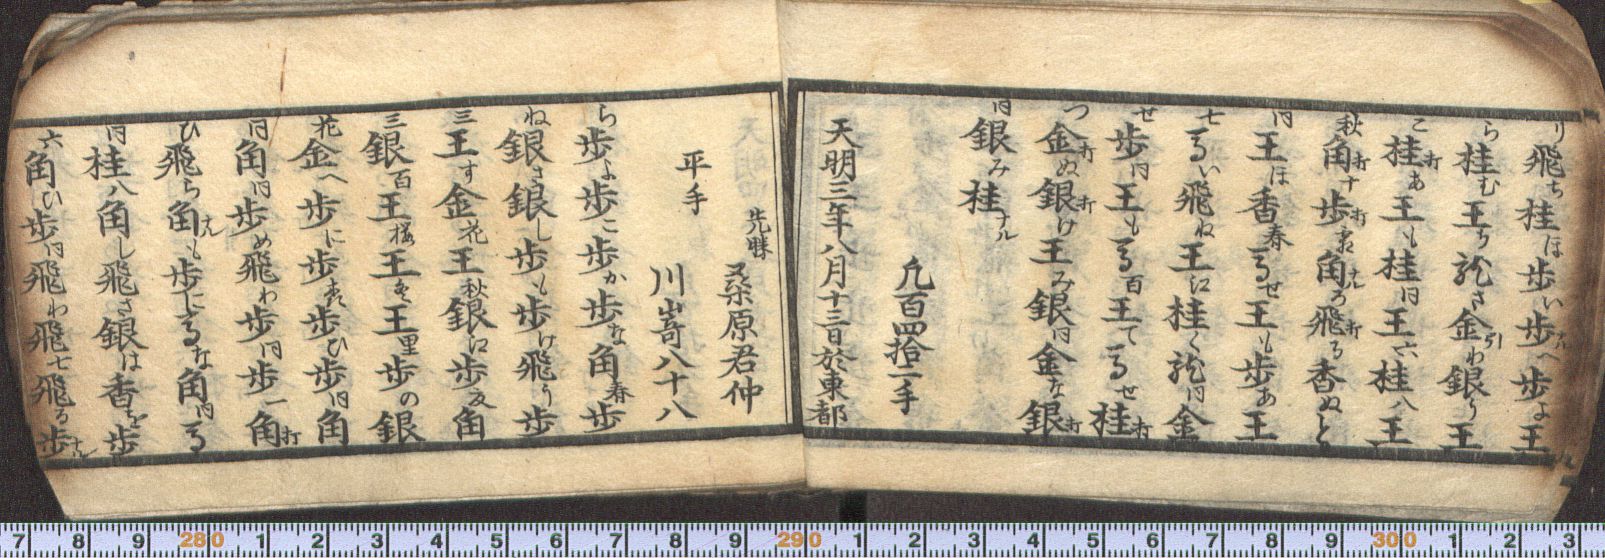 り飛ち桂ほ歩い歩へ歩よ王
ら桂む王ち龍さ金引わ銀う王
こ桂打あ王も桂同王六桂八王
秋角打十歩打角る飛打る香ぬと
同王ほ香春馬せ王も歩あ王
七馬い飛ね王に桂く龍同金
せ歩同王も馬百王て馬せ桂打
つ金打ぬ銀打け王み銀同金な銀打
同銀み桂ナル
凢百四拾二手
天明三年八月十三日於東都
先勝 桑原君仲
平手
川嵜八十八
ら歩よ歩こ歩か歩な角春歩
ね銀さ銀し歩も歩け飛う歩
三王す金花王秋銀に歩友角
三銀百王桜王王里歩の銀
花金へ歩に歩歩ひ歩同角
同角同歩め飛わ歩同歩一角打
ひ飛ら角ナルも歩に馬な角同馬
同桂八角し飛さ銀は香を歩
六角ひ歩同飛わ飛七飛る歩ナル